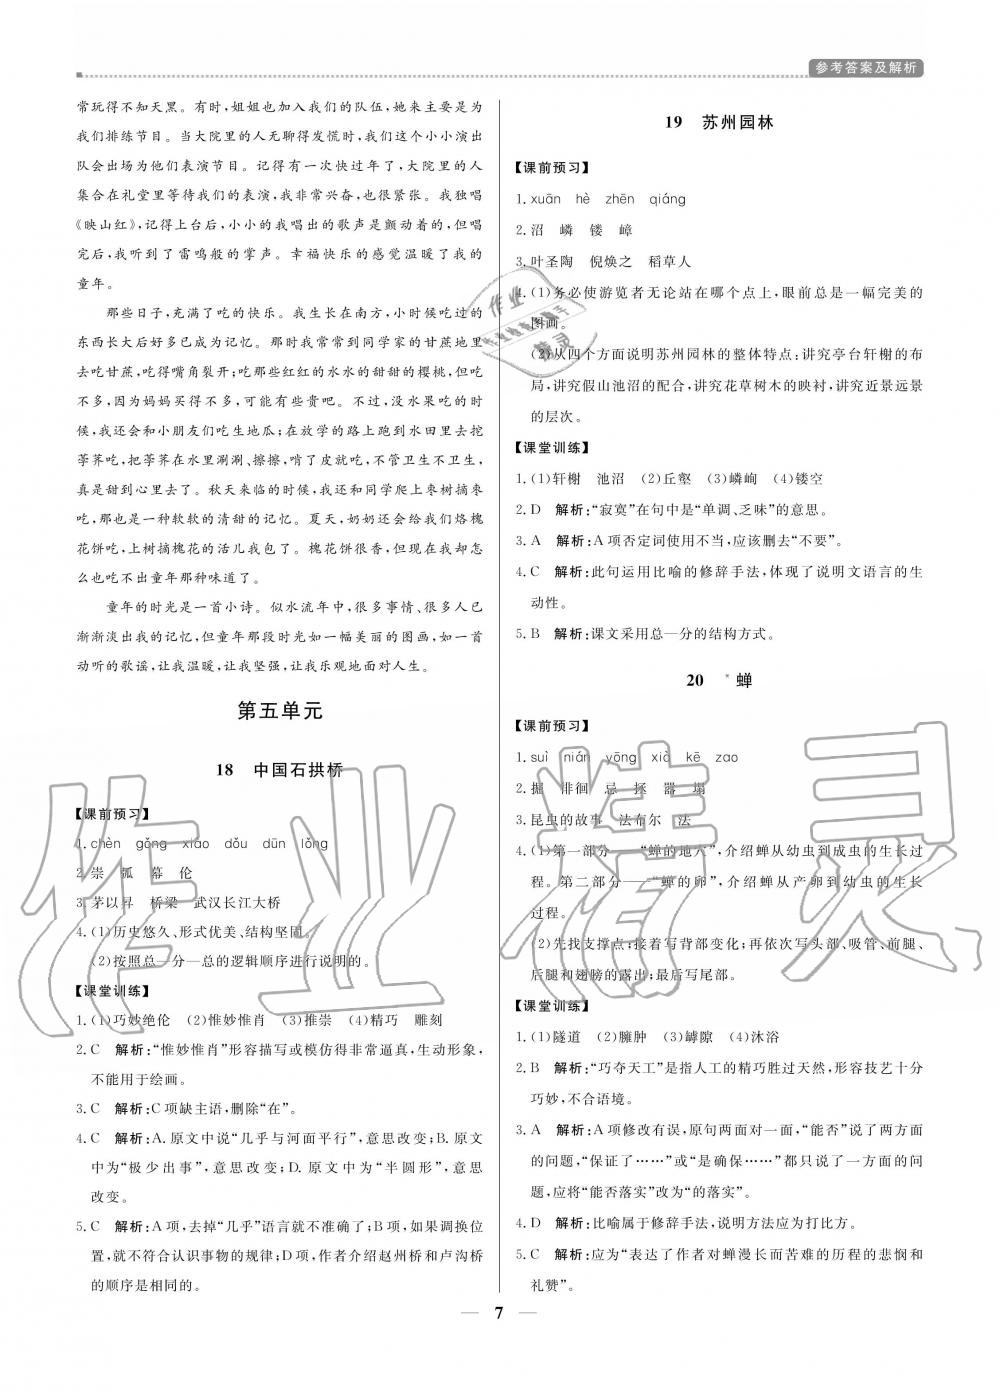 参考答案及解析
常玩得不知天黑。有时,姐姐也加入我们的队伍,她来主要是为
我们排练节目。当大院里的人无聊得发慌时,我们这个小小演出
队会出场为他们表演节目。记得有一次快过年了,大院里的人
集合在礼堂里等待我们的表演,我非常兴奋,也很紧张。我独唱
《映山红》,记得上台后,小小的我唱出的歌声是颤动着的,但唱
完后,我听到了雷鸣般的掌声。幸福快乐的感觉温暖了我的
童年。
那些日子,充满了吃的快乐。我生长在南方,小时候吃过的
东西长大后好多已成为记忆。那时我常常到同学家的甘蔗地里
去吃甘蔗,吃得嘴角裂开;吃那些红红的水水的甜甜的樱桃,但吃
不多,因为妈妈买得不多,可能有些贵吧。不过,没水果吃的时
候,我还会和小朋友们吃生地瓜;在放学的路上跑到水田里去挖
荸荠吃,把荸荠在水里涮涮、擦擦,啃了皮就吃,不管卫生不卫生,
真是甜到心里去了。秋天来临的时候,我还和同学爬上枣树摘枣
吃,那也是一种软软的清甜的记忆。夏天,奶奶还会给我们烙槐
花饼吃,上树摘槐花的活儿我包了。槐花饼很香,但现在我却怎
么也吃不出童年那种味道了。
童年的时光是一首小诗。似水流年中,很多事情、很多人已
渐渐淡出我的记忆,但童年那段时光如一幅美丽的图画,如一首
动听的歌谣,让我温暖,让我坚强,让我乐观地面对人生。
第五单元
18 中国石拱桥
【课前预习】
1. chèn gǒng xiáo dǒu dūn lǒng
2. 崇 孤 幕 伦
3. 茅以升 桥梁 武汉长江大桥
4. (1)历史悠久、形式优美、结构坚固。
(2)按照总—分—总的逻辑顺序进行说明的。
【课堂训练】
1. (1)巧妙绝伦 (2)惟妙惟肖 (3)推崇 (4)精巧 雕刻
2. C 解析:“惟妙惟肖”形容描写或模仿得非常逼真,生动形象,
不能用于绘画。
3. C 解析:C项缺主语,删除“在”。
4. C 解析:A. 原文中说“几乎与河面平行”,意思改变;B. 原文
中为“极少出事”,意思改变;D. 原文中为“半圆形”,意思
改变。
5. C 解析:A项,去掉“几乎”语言就不准确了;B项,如果调换位
置,就不符合认识事物的规律;D项,作者介绍赵州桥和卢沟桥
的顺序是相同的。
19 苏州园林
【课前预习】
1. xuān hè zhēn qiáng
2. 沼 嶙 镂 嶂
3. 叶圣陶 倪焕之 稻草人
4. (1)务必使游览者无论站在哪个点上,眼前总是一幅完美的
图画。
(2)从四个方面说明苏州园林的整体特点:讲究亭台轩榭的布
局,讲究假山池沼的配合,讲究花草树木的映衬,讲究近景远景
的层次。
【课堂训练】
1. (1)轩榭 池沼 (2)丘壑 (3)嶙峋 (4)镂空
2. D 解析:“寂寞”在句中是“单调、乏味”的意思。
3. A 解析:A项否定词使用不当,应该删去“不要”。
4. C 解析:此句运用比喻的修辞手法,体现了说明文语言的生
动性。
5. B 解析:课文采用总—分的结构方式。
20 *蝉
【课前预习】
1. suì nián yōng xià kē zao
2. 掘 徘徊 忌 择 嚣 塌
3. 昆虫的故事 法布尔 法
4. (1)第一部分——“蝉的地穴”,介绍蝉从幼虫到成虫的生长过
程。第二部分——“蝉的卵”,介绍蝉从产卵到幼虫的生长
过程。
(2)先找支撑点;接着写背部变化;再依次写头部、吸管、前腿、
后腿和翅膀的露出;最后写尾部。
【课堂训练】
1. (1)隧道 (2)臃肿 (3)罅隙 (4)沐浴
2. B 解析:“巧夺天工”是指人工的精巧胜过天然,形容技艺十分
巧妙,不合语境。
3. A 解析:A项修改有误,原句两面对一面,“能否”说了两方面
的问题,“保证了……”或“是确保……”都只说了一方面的问
题,应将“能否落实”改为“的落实”。
4. D 解析:比喻属于修辞手法,说明方法应为打比方。
5. C 解析:应为“表达了作者对蝉漫长而苦难的历程的悲悯和
礼赞”。
7
作业精灵